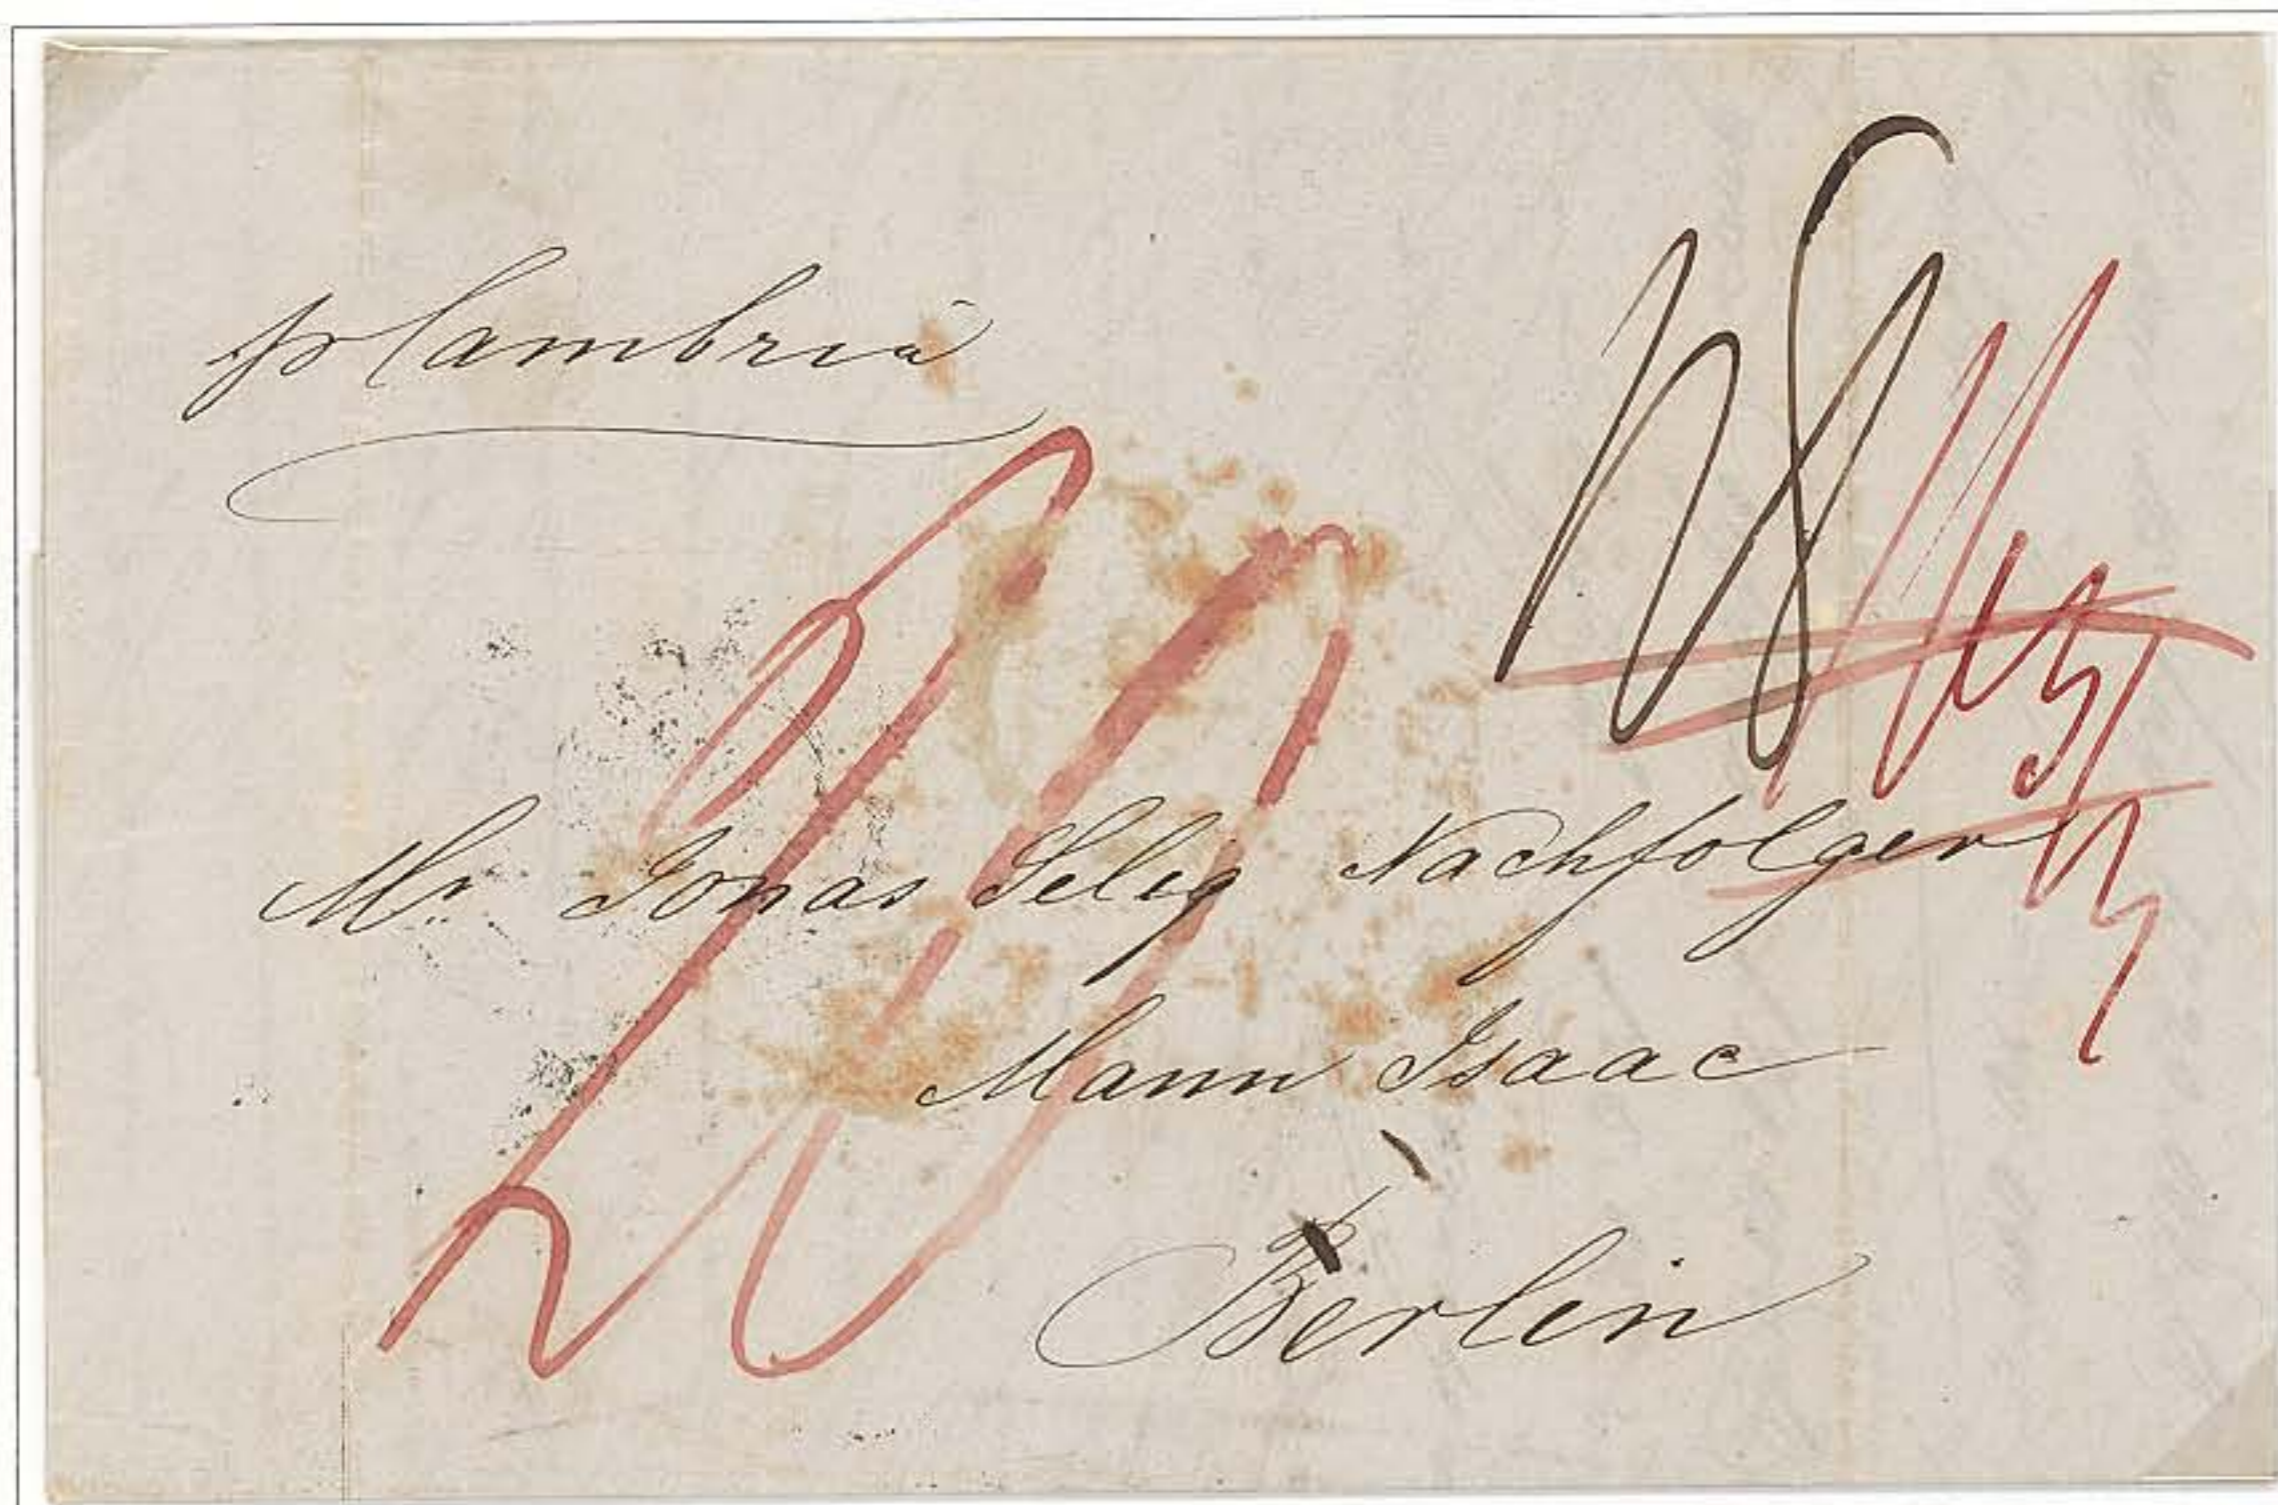 pr Cambria
Mr. Jonas Selig Nachfolger
Mann Isaac
Berlin